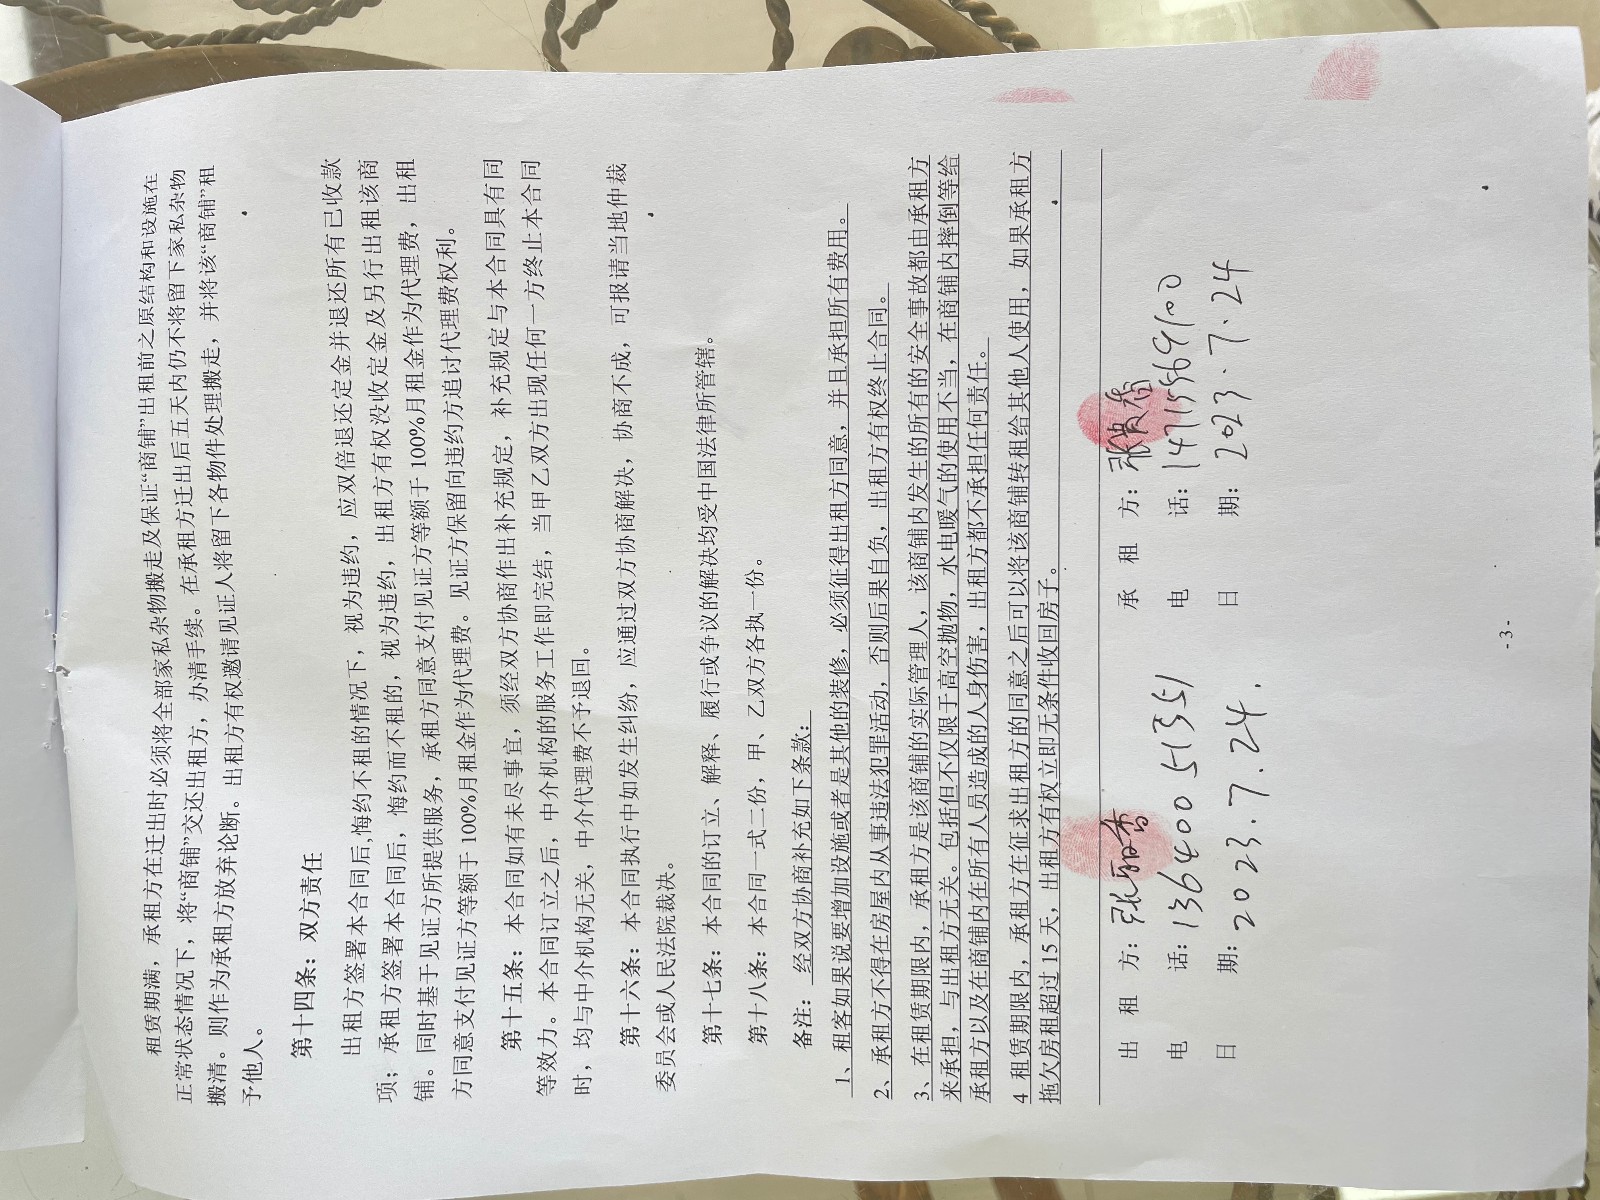 租赁期满，承租方在迁出时必须将全部家私杂物搬走及保证“商铺”出租前之原结构和设施在
正常状态情况下，将“商铺”交还出租方，办清手续。在承租方迁出后五天内仍不将留下家私杂物
搬清。则作为承租方放弃论断。出租方有权邀请见证人将留下各物件处理搬走，并将该“商铺”租
予他人。
第十四条：双方责任
出租方签署本合同后,悔约不租的情况下，视为违约，应双倍退还定金并退还所有已收款
项；承租方签署本合同后，悔约而不租的，视为违约，出租方有权没收定金及另行出租该商
铺。同时基于见证方所提供服务，承租方同意支付见证方等额于 100%月租金作为代理费，出租
方同意支付见证方等额于 100%月租金作为代理费。见证方保留向违约方追讨代理费权利。
第十五条：本合同如有未尽事宜，须经双方协商作出补充规定，补充规定与本合同具有同
等效力。本合同订立之后，中介机构的服务工作即完结，当甲乙双方出现任何一方终止本合同
时，均与中介机构无关，中介代理费不予退回。
第十六条：本合同执行中如发生纠纷，应通过双方协商解决，协商不成，可报请当地仲裁
委员会或人民法院裁决。
第十七条：本合同的订立、解释、履行或争议的解决均受中国法律所管辖。
第十八条：本合同一式二份，甲、乙双方各执一份。
备注：经双方协商补充如下条款：
1、租客如果说要增加设施或者是其他的装修，必须征得出租方同意，并且承担所有费用。
2、承租方不得在房屋内从事违法犯罪活动，否则后果自负，出租方有权终止合同。
3、在租赁期限内，承租方是该商铺的实际管理人，该商铺内发生的所有的安全事故都由承租方
来承担，与出租方无关。包括但不仅限于高空抛物，水电暖气的使用不当，在商铺内摔倒等给
承租方以及在商铺内在所有人员造成的人身伤害，出租方都不承担任何责任。
4 租赁期限内，承租方在征求出租方的同意之后可以将该商铺转租给其他人使用，如果承租方
拖欠房租超过 15 天，出租方有权立即无条件收回房子。
出 租 方：张丽香 承 租 方：张贵春
电 话：13640051351 电 话：14715569100
日 期：2023.7.24. 日 期：2023.7.24
-3-